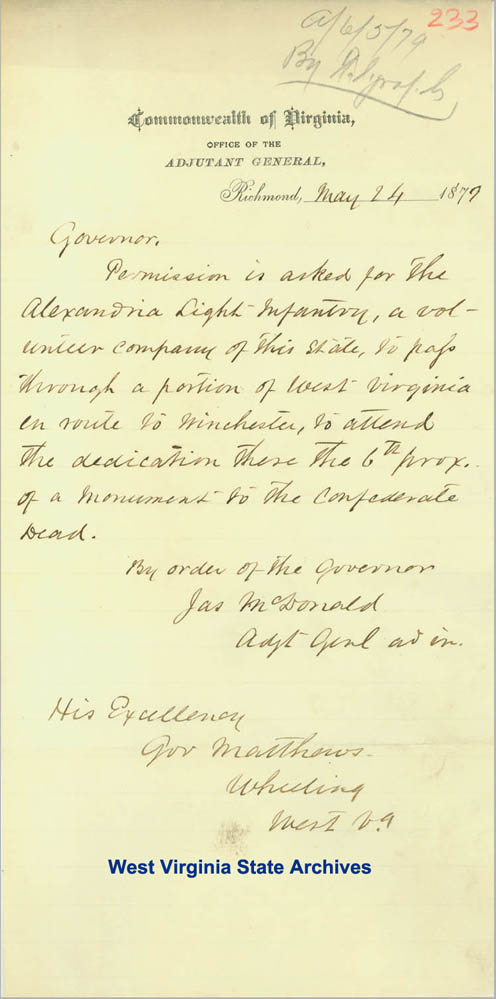 233
A/6/5/79
By Telegraph
Commonwealth of Virginia,
OFFICE OF THE
ADJUTANT GENERAL,
Richmond, May 24 1879
Governor.
Permission is asked for the
Alexandria Light Infantry, a vol-
unteer company of this State, to pass
through a portion of West Virginia
en route to Winchester, to attend
the dedication there the 6th prox.
of a Monument to the Confederate
Dead.
By order of the Governor
Jas McDonald
Adjt Genl ad in.
His Excellency
Gov Matthews
Wheeling
West Va
West Virginia State Archives